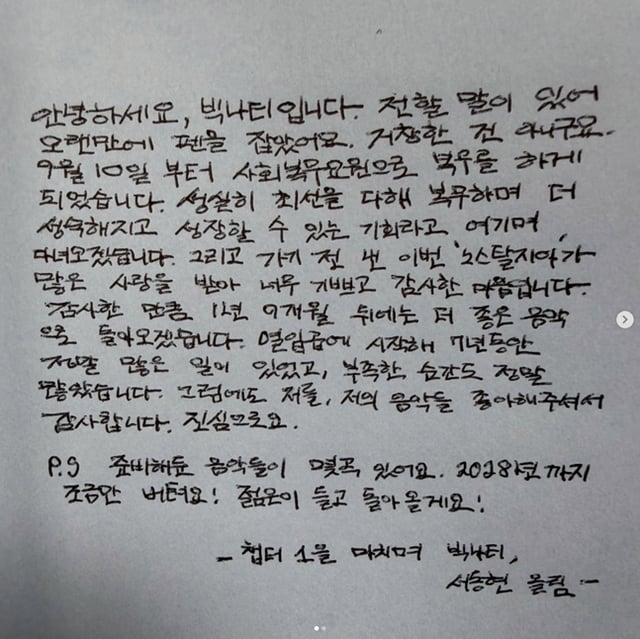 안녕하세요, 빅나티입니다. 전할 말이 있어
오랜만에 펜을 잡았어요. 거창한 건 아니구요.
9월 10일 부터 사회복무요원으로 복무를 하게
되었습니다. 성실히 최선을 다해 복무하며 더
성숙해지고 성장할 수 있는 기회라고 여기며,
다녀오겠습니다. 그리고 가기 전 낸 이번 '노스탈지아'가
많은 사랑을 받아 너무 기쁘고 감사한 마음입니다.
감사한 만큼 1년 9개월 뒤에는 더 좋은 음악
으로 돌아오겠습니다. 열일곱에 시작해 7년동안
정말 많은 일이 있었고, 부족한 순간도 정말
많았습니다. 그럼에도 저를, 저의 음악들 좋아해주셔서
감사합니다. 진심으로요.
P.S 준비해둔 음악들이 몇곡 있어요. 2028년까지
조금만 버텨요! 젊은이 들고 돌아올게요!
- 챕터 1을 마치며 빅나티,
서동현 올림. -